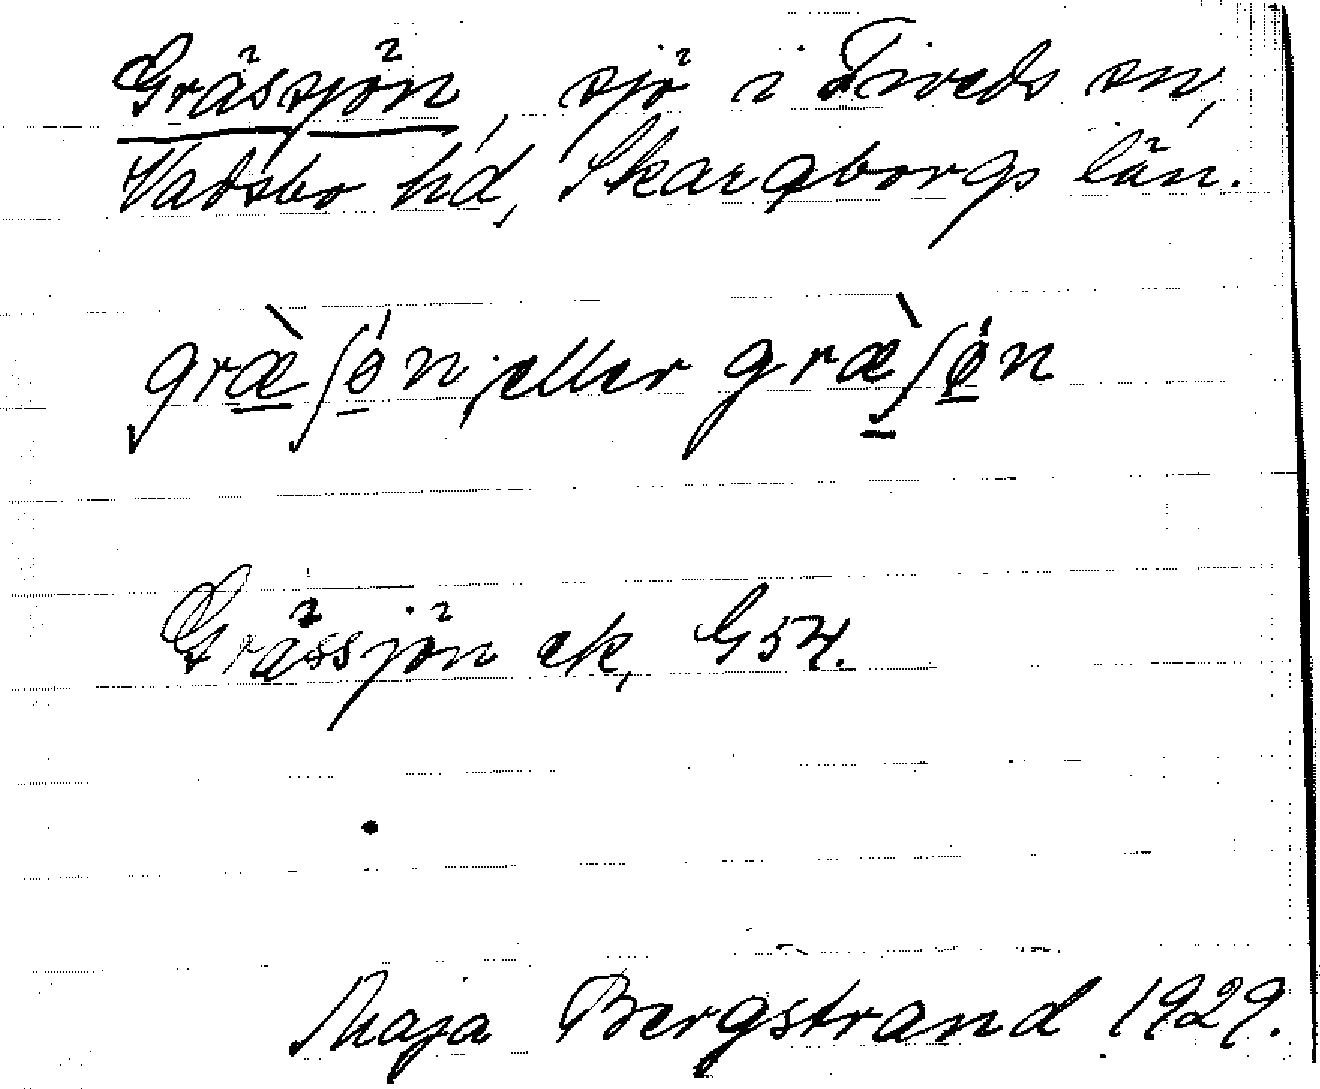 Grässjön, sjö i Tiveds sn,
Vadsbo hd, Skaraborgs län.
græ̀ʃǿn, eller græ̀ʃǿn
Grässjön ek, G54.
Maja Bergstrand 1929.